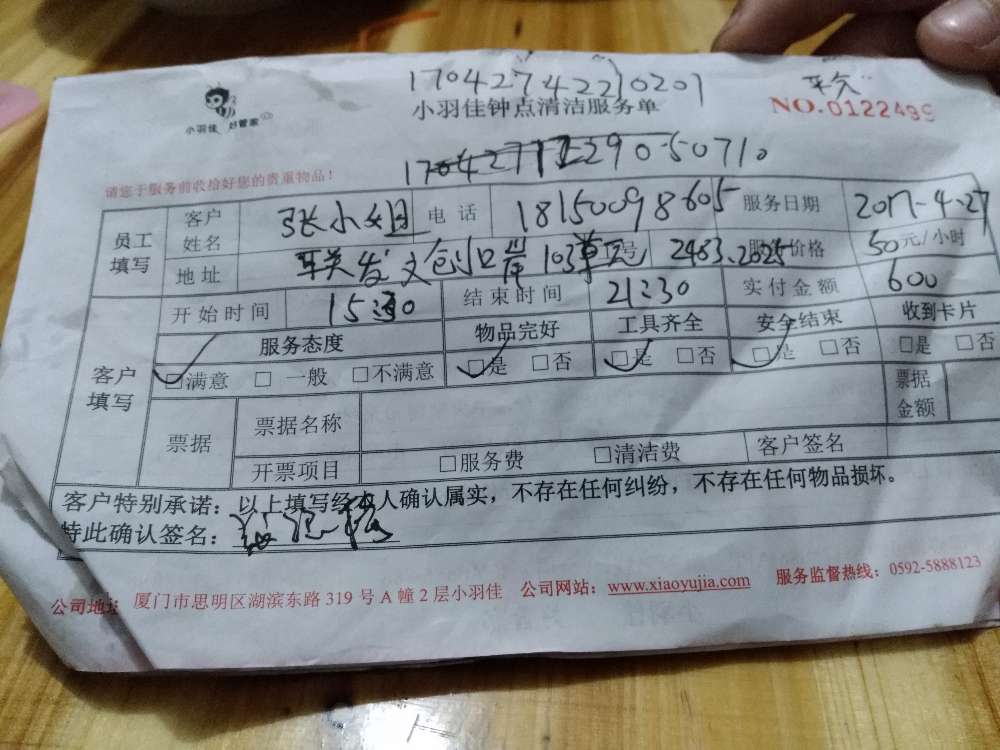 17042742210201
小羽佳 好管家
小羽佳钟点清洁服务单
NO.0122499
请您于服务前收给好您的贵重物品！
员工填写 客户姓名 张小姐 电话 18150098605 服务日期 2017-4.27
地址 103单元 2483.2825 服务价格 50元/小时
开始时间 15:30 结束时间 21:30 实付金额 600
客户填写 服务态度 物品完好 工具齐全 安全结束 收到卡片
□满意 □ 一般 □不满意 □是 □否 □是 □否 □是 □否 □是 □否
票据 票据名称 票据金额
开票项目 □服务费 □清洁费 客户签名
客户特别承诺：以上填写经本人确认属实，不存在任何纠纷，不存在任何物品损坏。
特此确认签名：
公司地址 厦门市思明区湖滨东路 319 号 A 幢 2 层小羽佳 公司网站：www.xiaoyujia.com 服务监督热线：0592-5888123